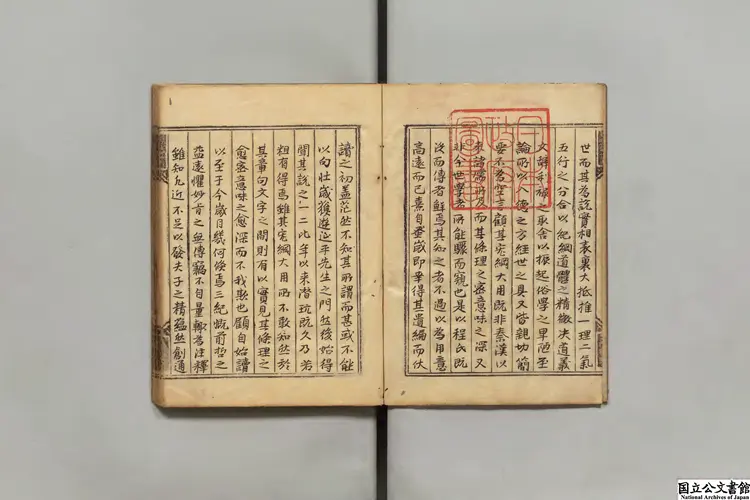 世而其為說實相表裏大抵推一理二氣
五行之分合以紀綱道體之精微決道義
文辭利祿之取舍以振起俗學之卑陋至
論所以入德之方經世之具又皆親切簡
要不為空言顧其宏綱大用既非秦漢以
來諸儒所及而其條理之密意味之深又
非今世學者所能驟而窺也是以程氏既
沒而傳者鮮焉其知之者不過以為用意
高遠而已熹自蚤歲即幸得其遺編而伏
讀之初蓋茫然不知其所謂而甚或不能
以句壯歲獲遊延平先生之門然後始得
聞其說之一二比年以来潜玩既久乃若
粗有得焉雖其宏綱大用所不敢知然於
其章句文字之間則有以實見其條理之
愈密意味之愈深而不我欺也顧自始讀
以至于今歲月幾何倏焉三紀慨前哲之
益遠懼妙旨之無傳竊不自量輒為注釋
雖知凡近不足以發夫子之精蘊然創通
国立公文書館
National Archives of Japan